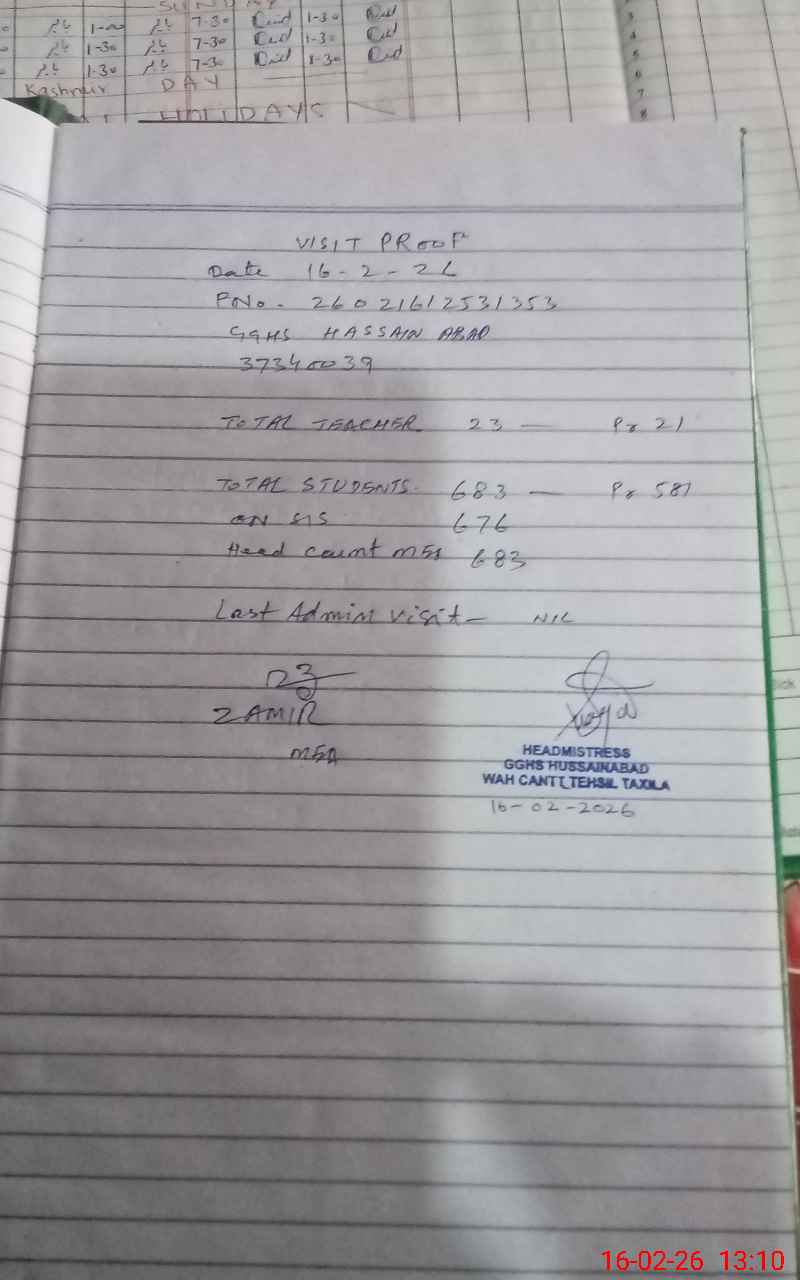 SUNDAY
1-00 7-30 1-30
1-30 7-30 1-30
1-30 7-30 1-30
Kashmir DAY
HOLIDAYS
3
4
5
6
7
8
VISIT PROOF
Date 16-2-26
PNo. 26021612531353
GGHS HASSAIN ABAD
37340039
TOTAL TEACHER 23 — Pr 21
TOTAL STUDENTS. 683 — Pr 581
ON SIS 676
Head count MEA 683
Last Admin visit — NIL
ZAMIR
MEA
HEADMISTRESS
GGHS HUSSAINABAD
WAH CANTT TEHSIL TAXILA
16-02-2026
16-02-26 13:10